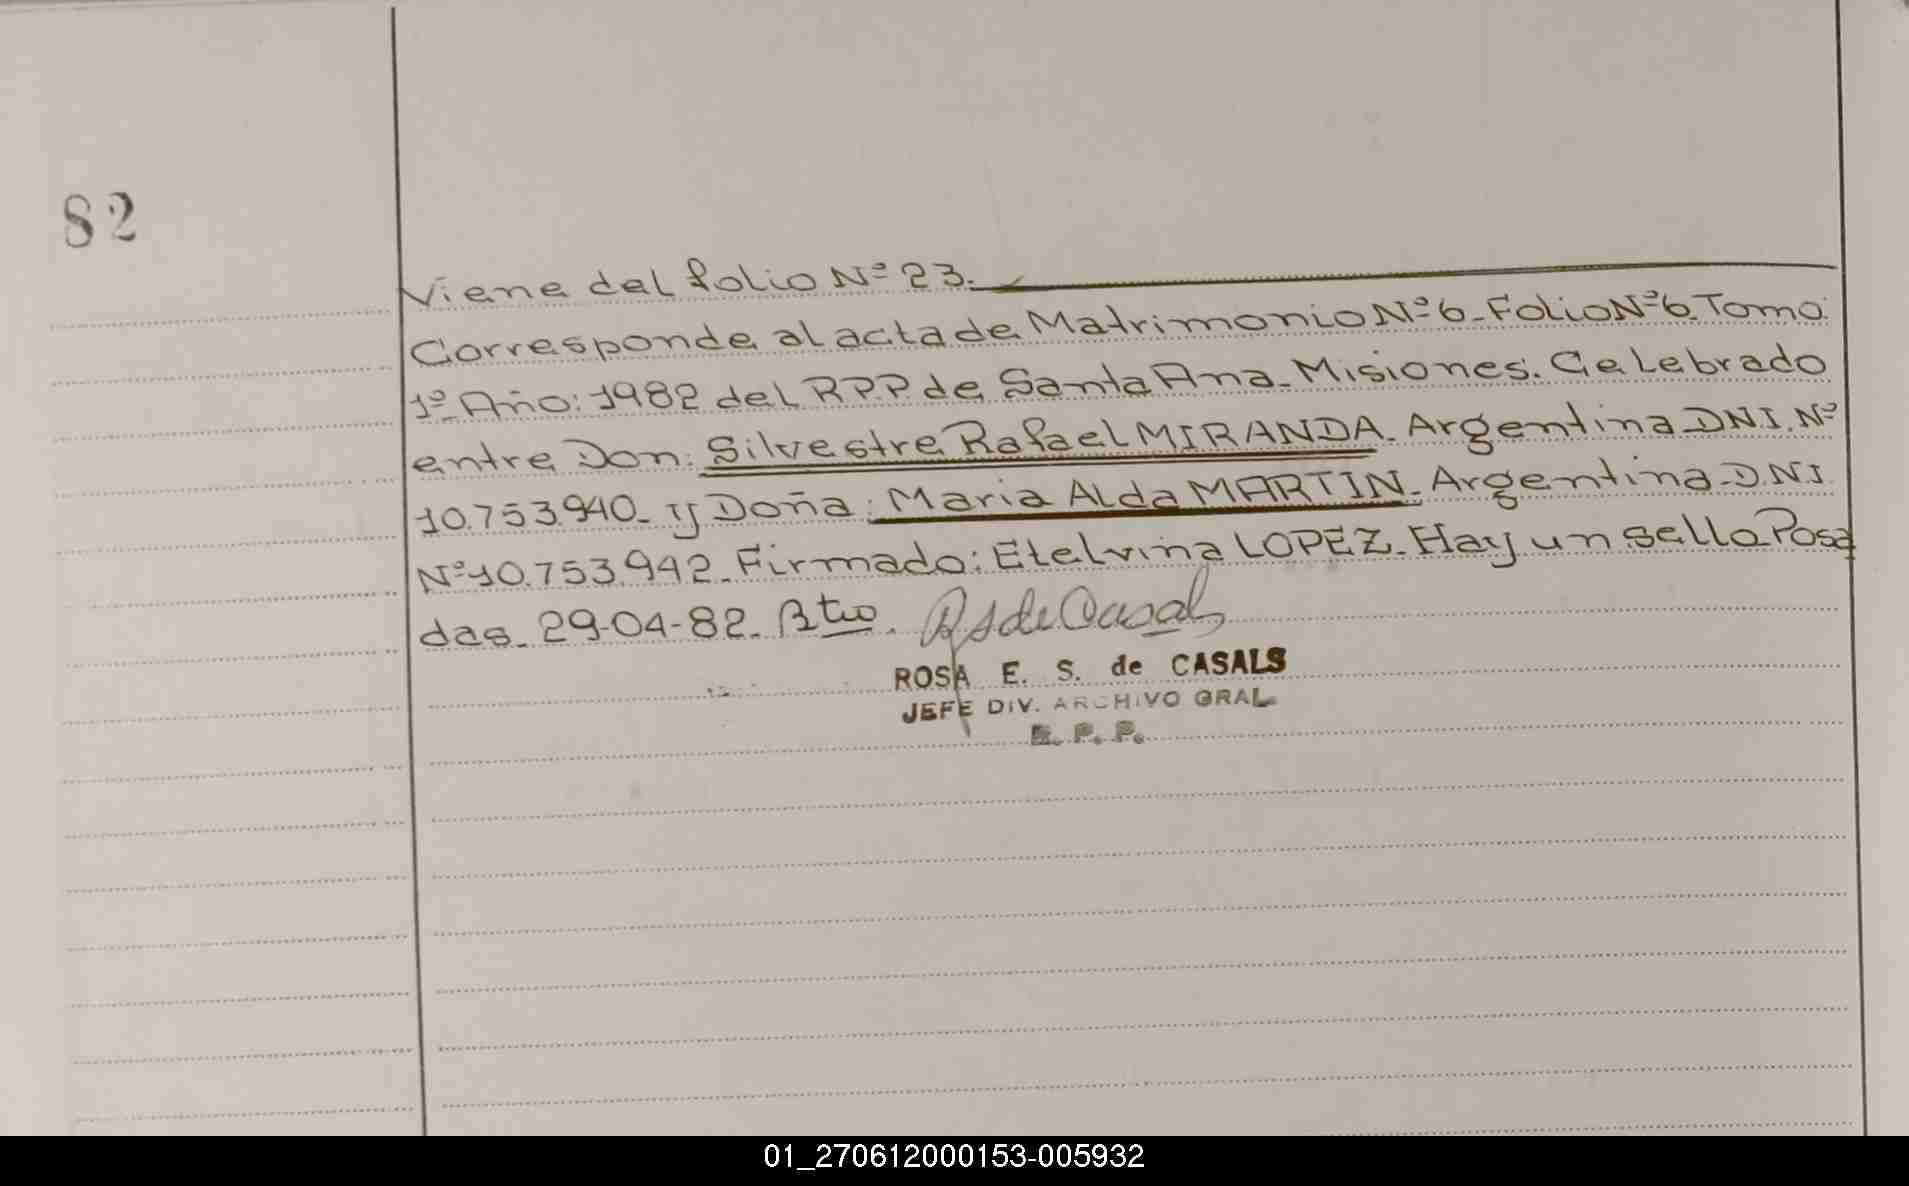 82
Viene del folio Nº 23.
Corresponde al acta de Matrimonio Nº 6 - Folio Nº 6 Tomo:
1º Año: 1982 del R.P.P. de Santa Ana - Misiones. Celebrado
entre Don: Silvestre Rafael MIRANDA - Argentina DNI. Nº
10.753.940 - y Doña: Maria Alda MARTIN - Argentina - DNI
Nº 10.753.942 - Firmado: Etelvina LOPEZ - Hay un sello Posa
das - 29-04-82 -
ROSA E. S. de CASALS
JEFE DIV. ARCHIVO GRAL
R. P. P.
01_270612000153-005932